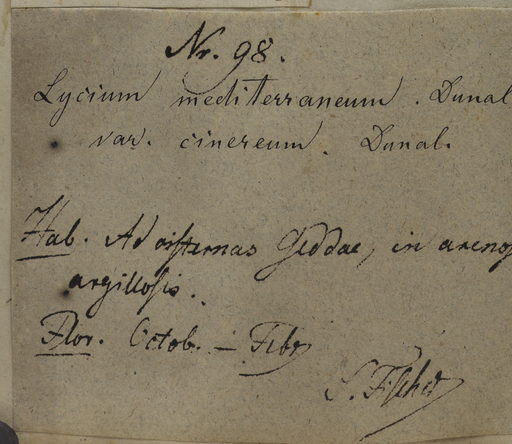 Nr. 98.
Lycium mediterraneum. Dunal
var. cinereum. Dunal.
Hab. Ad cisternas Geddae, in arenos
argillosis.
Flor. Octob. — Febr
S. Fischer